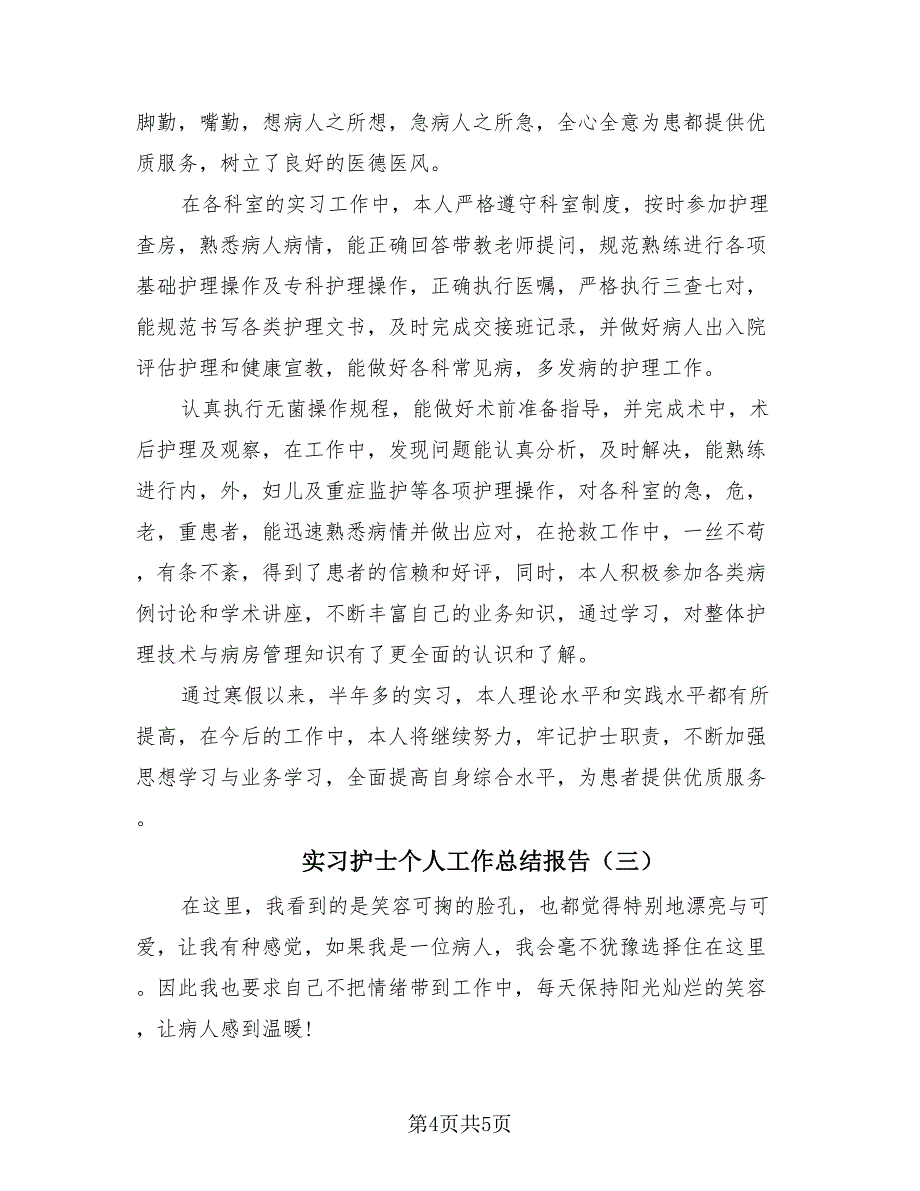 脚勤，嘴勤，想病人之所想，急病人之所急，全心全意为患都提供优
质服务，树立了良好的医德医风。
在各科室的实习工作中，本人严格遵守科室制度，按时参加护理
查房，熟悉病人病情，能正确回答带教老师提问，规范熟练进行各项
基础护理操作及专科护理操作，正确执行医嘱，严格执行三查七对，
能规范书写各类护理文书，及时完成交接班记录，并做好病人出入院
评估护理和健康宣教，能做好各科常见病，多发病的护理工作。
认真执行无菌操作规程，能做好术前准备指导，并完成术中，术
后护理及观察，在工作中，发现问题能认真分析，及时解决，能熟练
进行内，外，妇儿及重症监护等各项护理操作，对各科室的急，危，
老，重患者，能迅速熟悉病情并做出应对，在抢救工作中，一丝不苟
，有条不紊，得到了患者的信赖和好评，同时，本人积极参加各类病
例讨论和学术讲座，不断丰富自己的业务知识，通过学习，对整体护
理技术与病房管理知识有了更全面的认识和了解。
通过寒假以来，半年多的实习，本人理论水平和实践水平都有所
提高，在今后的工作中，本人将继续努力，牢记护士职责，不断加强
思想学习与业务学习，全面提高自身综合水平，为患者提供优质服务
。
实习护士个人工作总结报告（三）
在这里，我看到的是笑容可掬的脸孔，也都觉得特别地漂亮与可
爱，让我有种感觉，如果我是一位病人，我会毫不犹豫选择住在这里
。因此我也要求自己不把情绪带到工作中，每天保持阳光灿烂的笑容
，让病人感到温暖!
第4页共5页